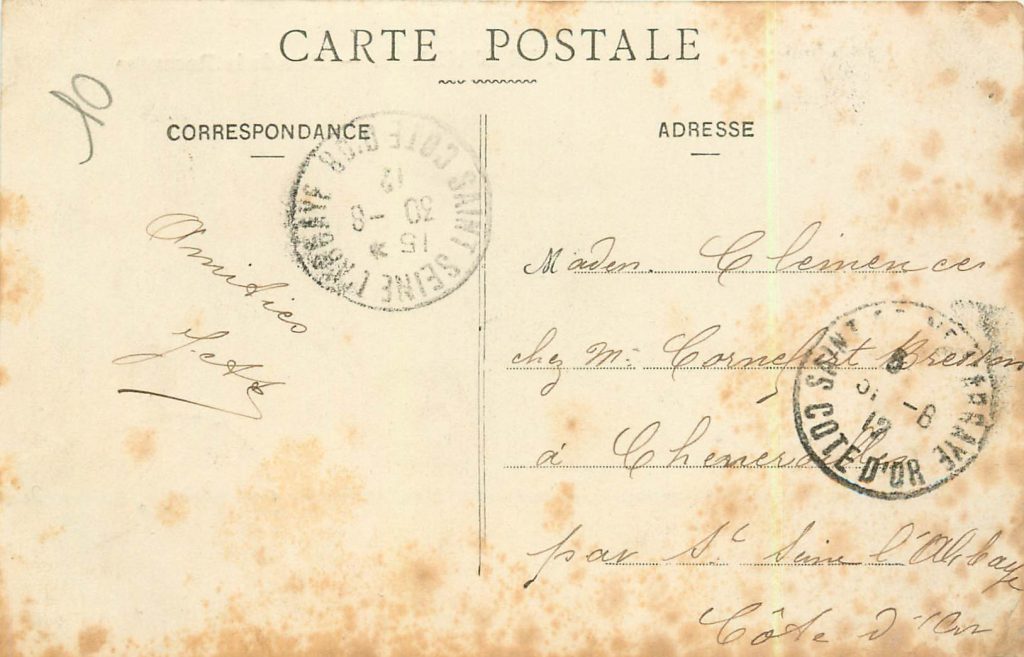 CARTE POSTALE
10
CORRESPONDANCE
ADRESSE
SAINT SEINE L'ABBAYE COTE D'OR
15 *
30 - 8
12
Amitiés
Madem. Clemence
chez Mr Cornefert
à
par St Seine l'Abbaye
Côte d'Or
SAINT SEINE L'ABBAYE COTE D'OR
8
31 - 8
12